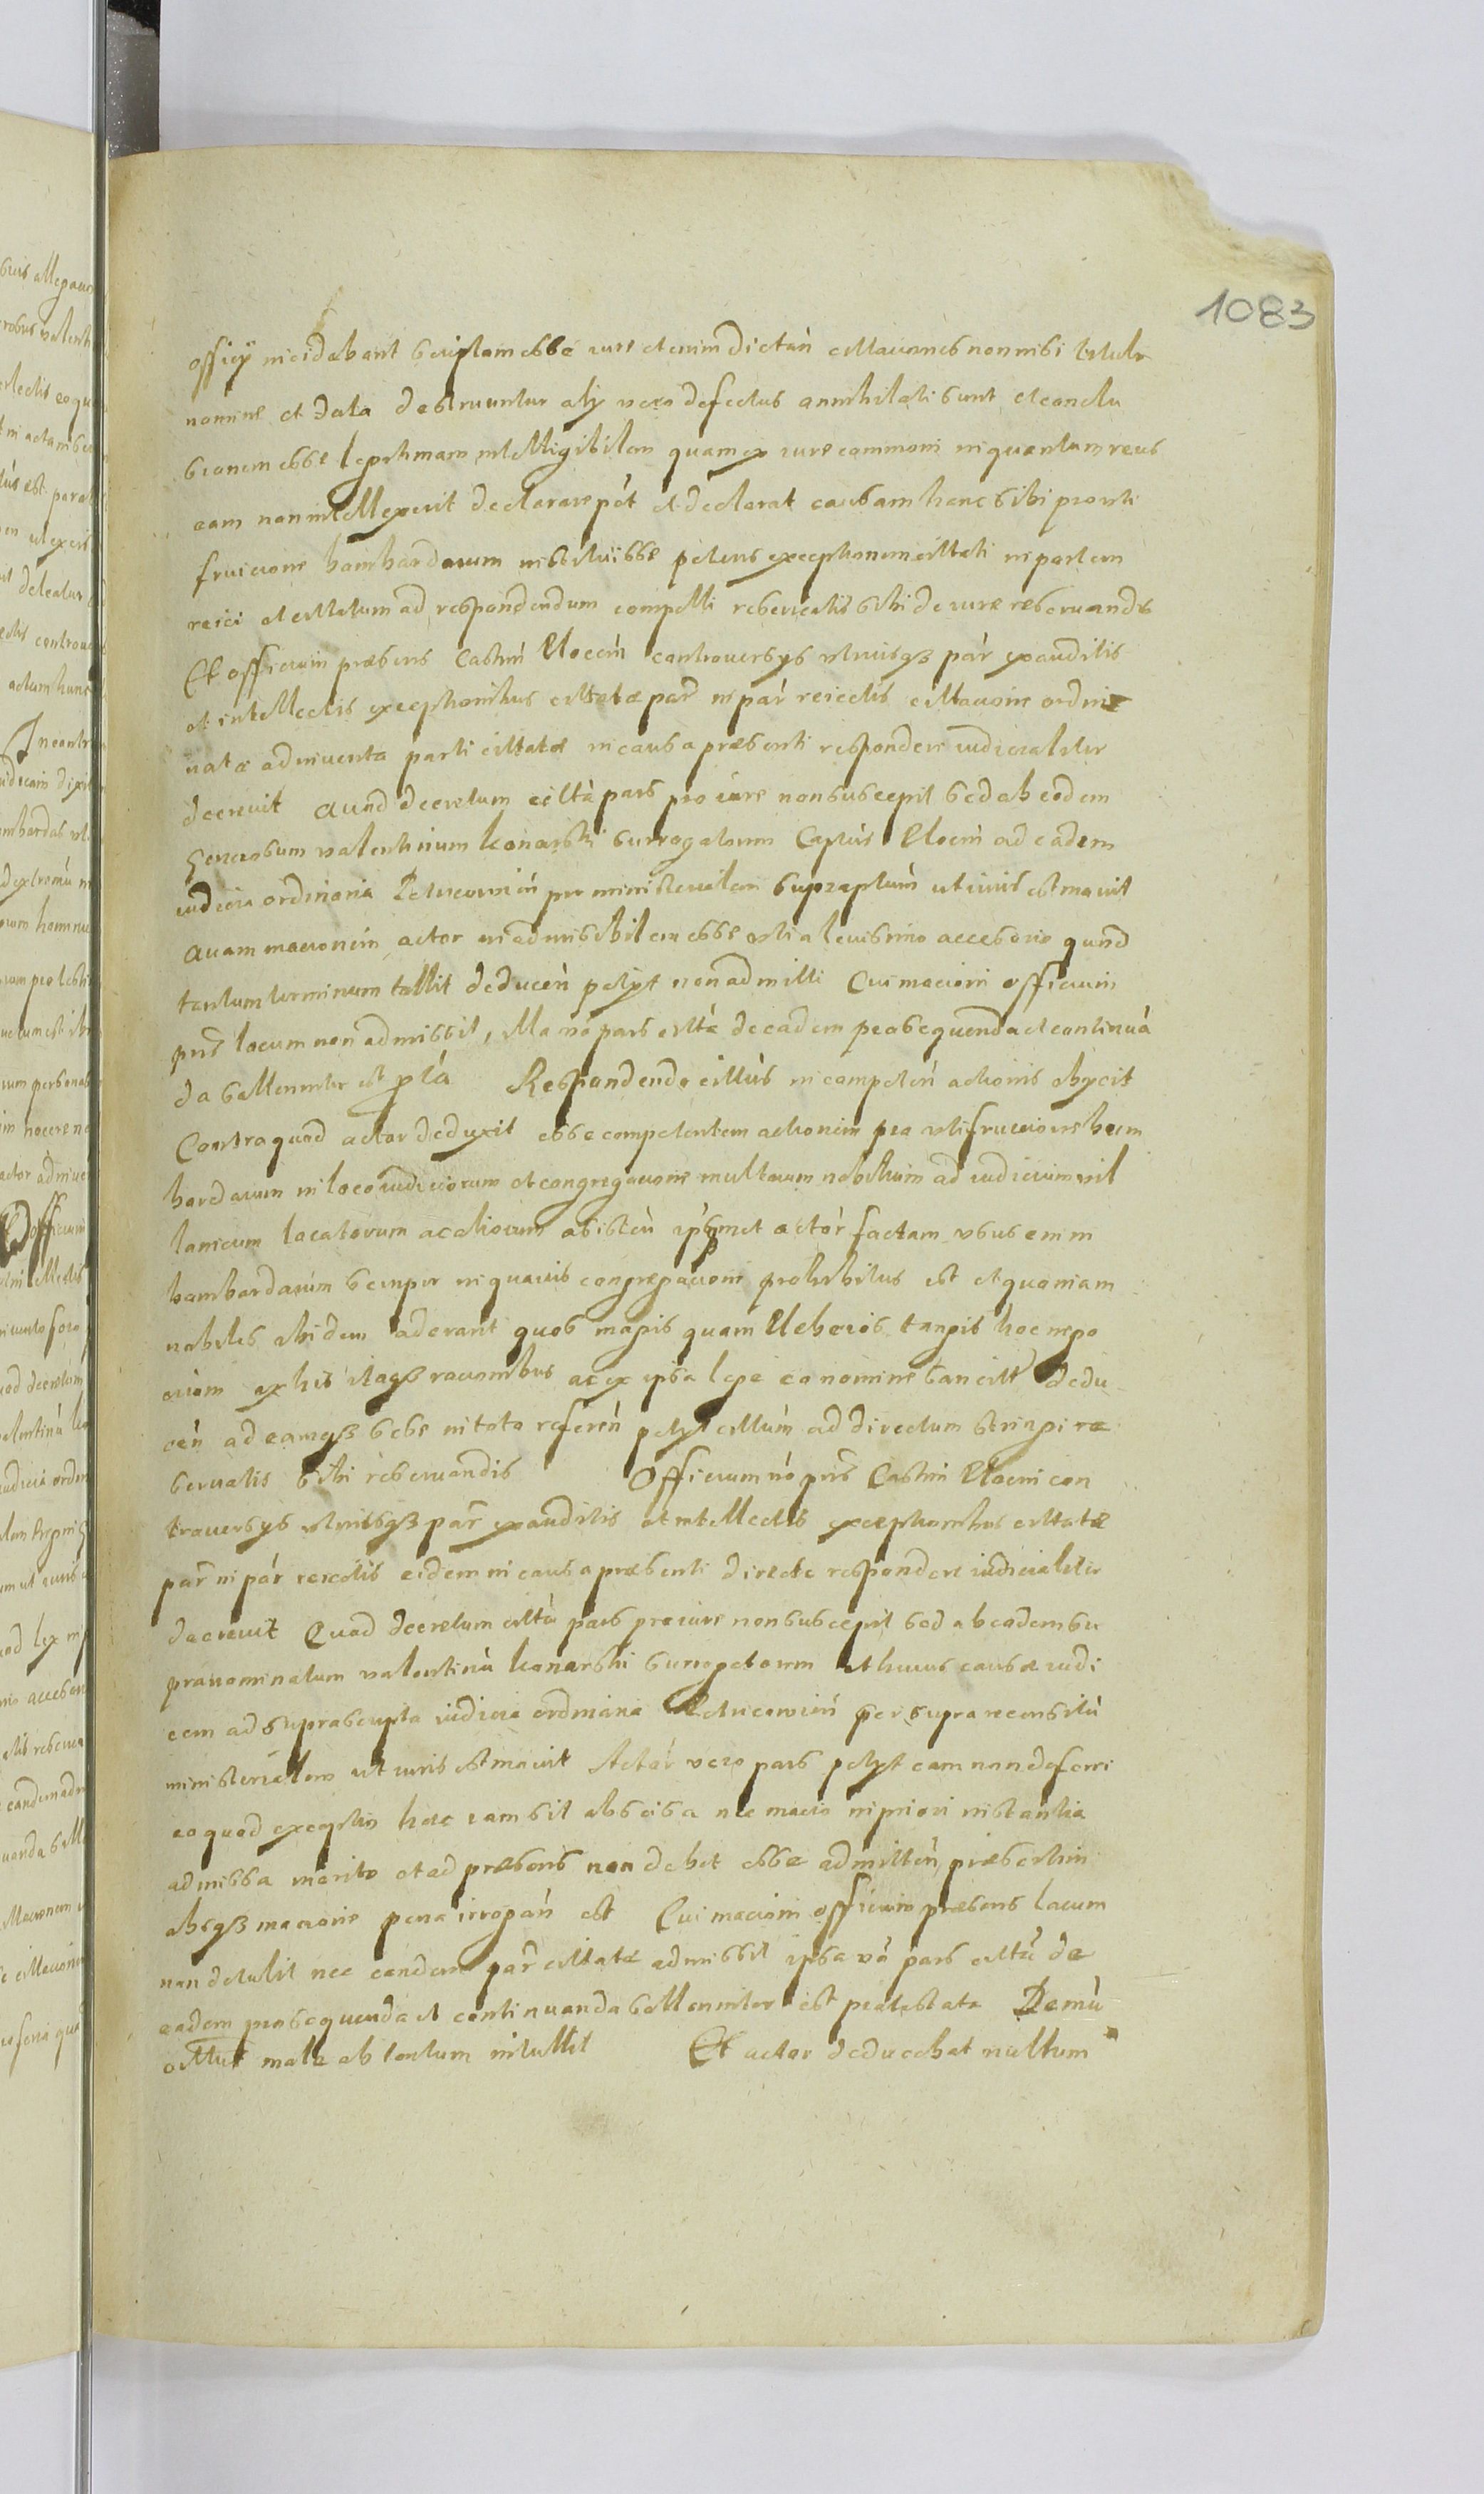 1083
officij incidebant scriptam esse iure etenim dictan cittationes non nisi titulo
nomine et data destruuntur alij vero defectus annihilati sunt et conclu
sionem esse legittimam intelligibilem quam ex iure communi in quantum reus
eam non intellexerit declarare pōt et declarat causam hanc sibi pro uti
fruicione bombardarum instituisse petens exceptionem cittati in partem
reici et cittatum ad respondendum compelli reservatis sibi de iure reservandis
Et officium præsens Castrn̄ Plocen̄ controversys utriusqȝ pār exauditis
et intellectis exceptionibus cittatæ pār in pār reiectis cittatione ordine
natæ adinventa parti cittatæ in causa præsenti respondere iudicialiter
decrevit Quod decretum citta pars pro iure non suscepit sed ab eodem
Generosum valentinum konarski surrogatorem Captus Plocen̄ ad eadem
iudicia ordinaria Petricovien̄ per ministerialem supraptum ut iuris est movit
Quam mocionem actor inadmissibilem esse uti a levissimo accessorio quod
tantum terminum tollit deducen̄ petyt non admitti Cui mocioni officium
pns̄ locum non admissit, illa vō pars citta de eadem prosequenda et continua
da sollenniter est ptā Respondendo cittus incompeten̄ actionis obycit
Contra quod actor deduxit esse competentem actionem pro utifruicione bom
bardarum in loco iudiciorum et congregatione multorum nobilium ad iudicium vil
lanicum locatorum ac aliorum assisten̄ ipsmet actor factam usus enim
bombardarum semper in quavis congregacioni prohibitus est et quoniam
nobiles ibidem aderant quos magis quam Plebeios tangit hoc nego
cium ex his itaqȝ racionibus ac ex ipsa lege eo nomine sancitt dedu
cen̄ ad eamqȝ sese in toto referen̄ petyt cittum ad directum stringi re
servatis sibi reservandis Officium vō pns̄ Castrn̄ Plocen̄ con
troversys utriusqȝ pār exauditis et intellectis exceptionibus cittatæ
pār in pār reiectis eidem in causa præsenti directe respondere iudicialiter
decrevit Quod decretum citta pars pro iure non suscepit sed ab eodem su
pranominatum valentinū konarski surrogatorem et huius causæ iudi
cem ad suprascripta iudicia ordinaria Petricovien̄ per supra recensitū
ministerialem ut iuris est movit Actor vero pars petyt eam non deferri
eo quod exceptio hæc iam sit abscisa nec mocio in priori instantia
admissa merito et ad præsens non debet esse admitten̄ præsertim
absqȝ mocione pena irrogan̄ est Cui mocioni officium præsens locum
non detulit nec eandem pār cittatæ admissit ipsa vō pars citta de
eadem prosequenda et continuanda sollenniter est protestata Demū
cittus male obtentum intullit Et actor deducebat nullum